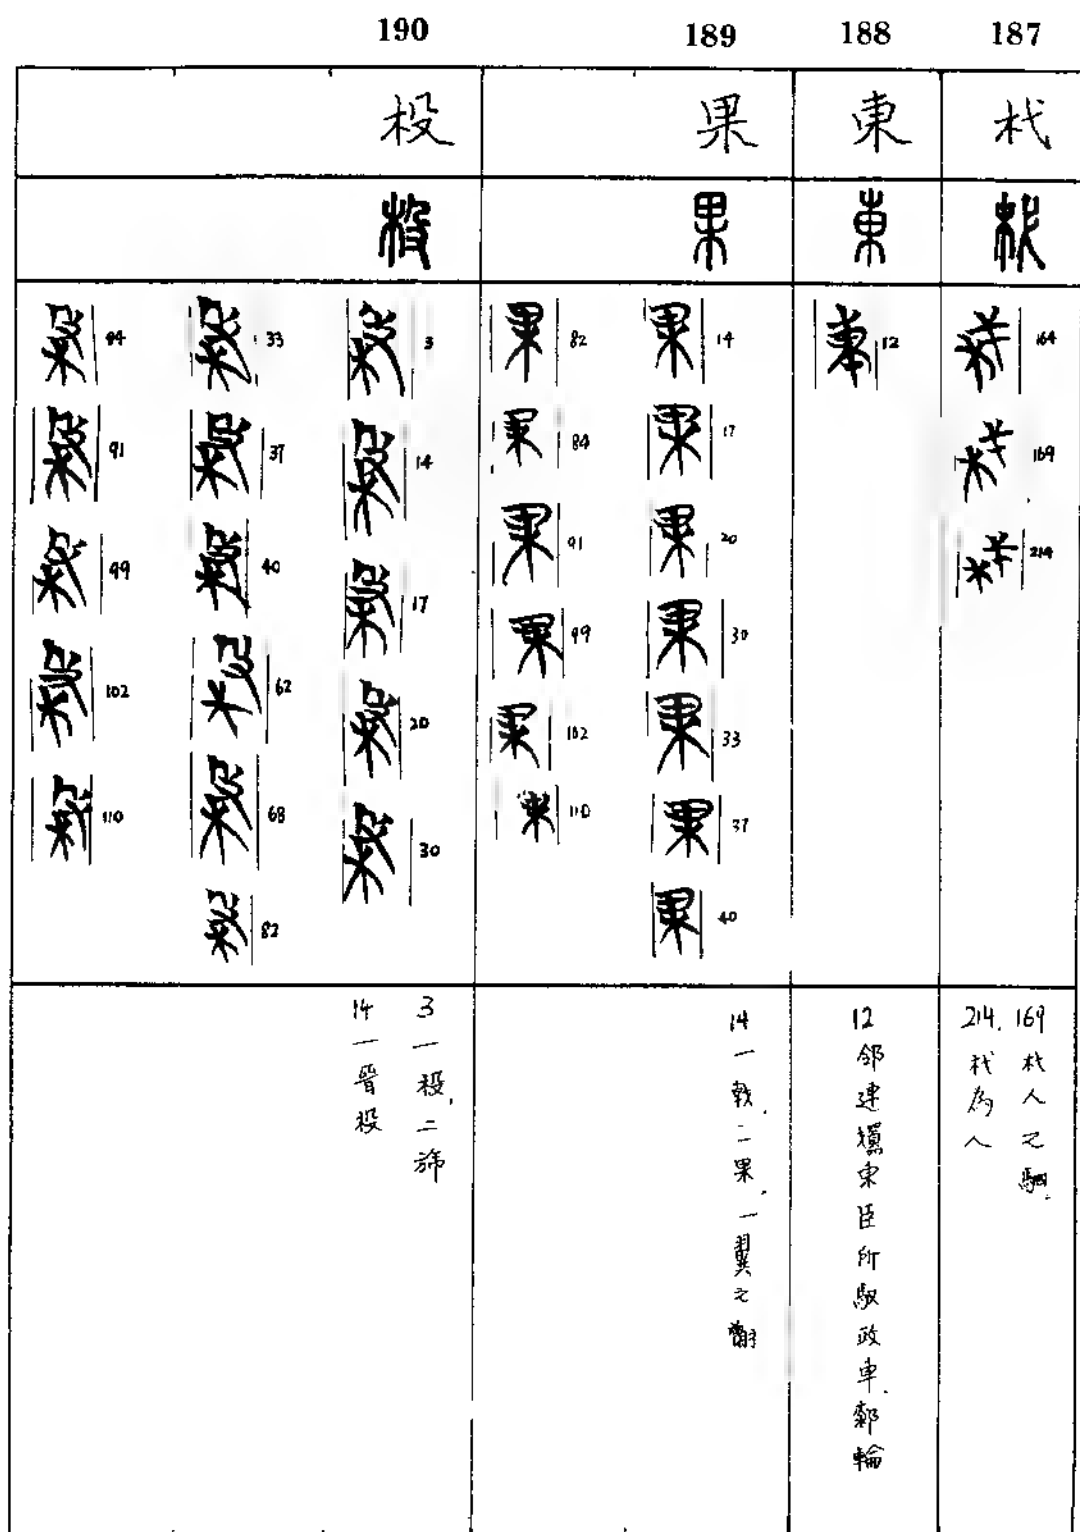 187
杙
164
169
214
169 杙人之駟.
214. 杙為人
188
東
12
12 䣄連囂東臣所馭政車.
輪
189
果
14
17
20
30
33
37
40
82
84
91
99
102
110
14 一戟.二果.一翼之
190
杸
3
14
17
20
30
33
37
40
62
68
82
84
91
99
102
110
3 一杸.二旆
14 一晉杸